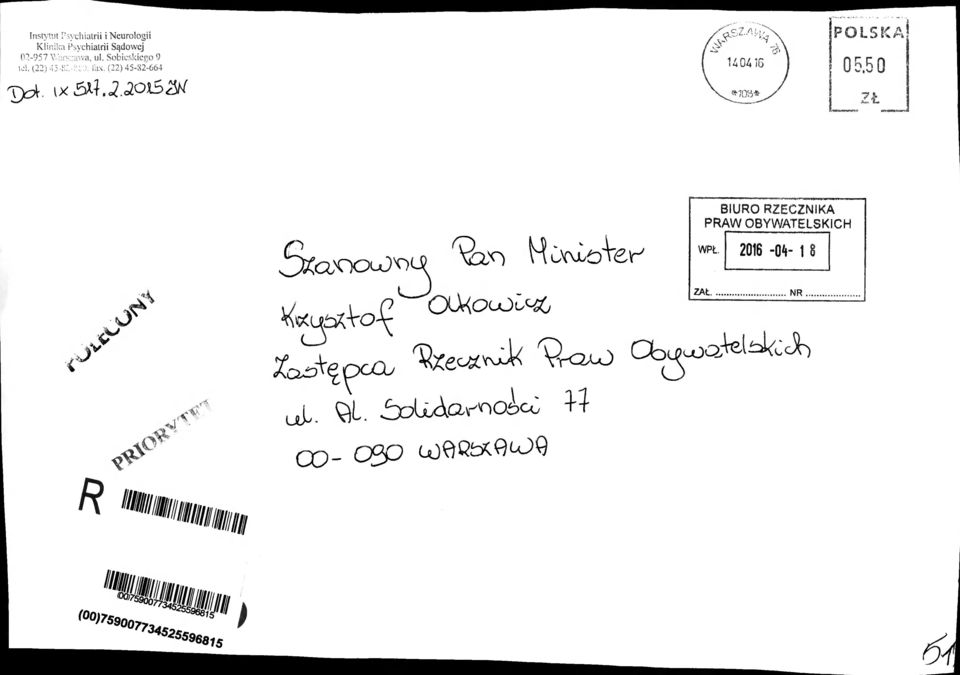 Instytut Psychiatrii i Neurologii
Klinika Psychiatrii Sądowej
02-957 Warszawa, ul. Sobieskiego 9
tel. (22) fax. (22) 45-82-664
Dot. IX 517.2.2015 JN
WARSZAWA 76
14.04.16
POLSKA
05,50
ZŁ
BIURO RZECZNIKA
PRAW OBYWATELSKICH
WPŁ. 2016 -04- 18
ZAŁ. .................... NR ................
Szanowny Pan Minister
Krzysztof Olkowicz
Zastępca Rzecznik Praw Obywatelskich
ul. Al. Solidarności 77
00-090 WARSZAWA
POLECONY
PRIORYTET
R
(00)759007734525596815
(00)759007734525596815
51